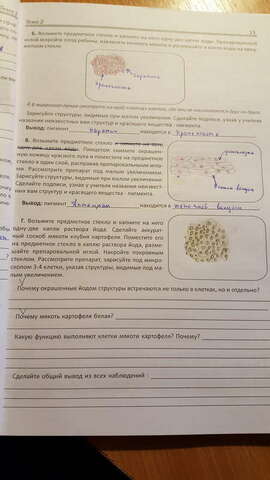 Тема 2
13
Б. Возьмите предметное стекло и капните на него одну каплю воды. Препаровальной
иглой вскройте плод рябины, извлеките немного мякоти и распределите в капле воды на пред-
метном стекле.
Каротин
Хромопласт
Зарисуйте структуры, видимые при малом увеличении. Сделайте подписи, узнав у учителя
названия неизвестных вам структур и красящего вещества - пигмента.
Вывод: пигмент каротин находится в хромопласте
В. Возьмите предметное стекло и капните на него
одну каплю воды. Пинцетом снимите окрашен-
ную кожицу красного лука и поместите на предметное
стекло в один слой, расправив препаровальными игла-
ми. Рассмотрите препарат под малым увеличением.
Зарисуйте структуры, видимые при малом увеличении.
Сделайте подписи, узнав у учителя названия неизвест-
ных вам структур и красящего вещества - пигмента.
Вывод: пигмент Антоциан находится в
Г. Возьмите предметное стекло и капните на него
одну-две капли раствора йода. Сделайте аккурат-
ный соскоб мякоти клубня картофеля. Поместите его
на предметное стекло в каплю раствора йода, разме-
шайте препаровальной иглой. Накройте покровным
стеклом. Рассмотрите препарат, зарисуйте под микро-
скопом 3-4 клетки, указав структуры, видимые под ма-
лым увеличением.
Почему окрашенные йодом структуры встречаются не только в клетках, но и отдельно?
Почему мякоть картофеля белая?
Какую функцию выполняют клетки мякоти картофеля? Почему?
Сделайте общий вывод из всех наблюдений :